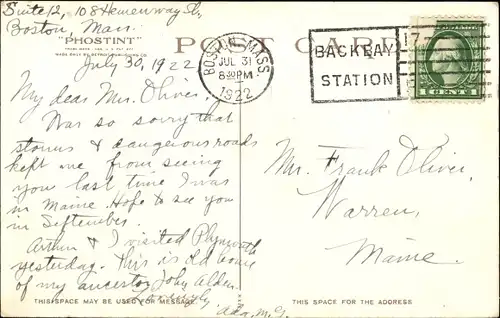 Suite 12, 108 Hemenway St.,
Boston, Mass.
"PHOSTINT"
MADE ONLY BY DETROIT PUBLISHING CO.
POST CARD
July 30, 1922
My dear Mrs. Oliver,
Was so sorry that
storms & dangerous roads
kept me from seeing
you last time I was
in Maine. Hope to see you
in September.
Arthur & I visited Plymouth
yesterday. This is old home
of my ancestor John Alden.
Lovingly,
Ada, M. G.
THIS SPACE MAY BE USED FOR MESSAGE
BOSTON, MASS
JUL 31
8 30 PM
1922
BACK BAY
STATION
1 CENT 1
Mr. Frank Oliver,
Warren,
Maine.
THIS SPACE FOR THE ADDRESS